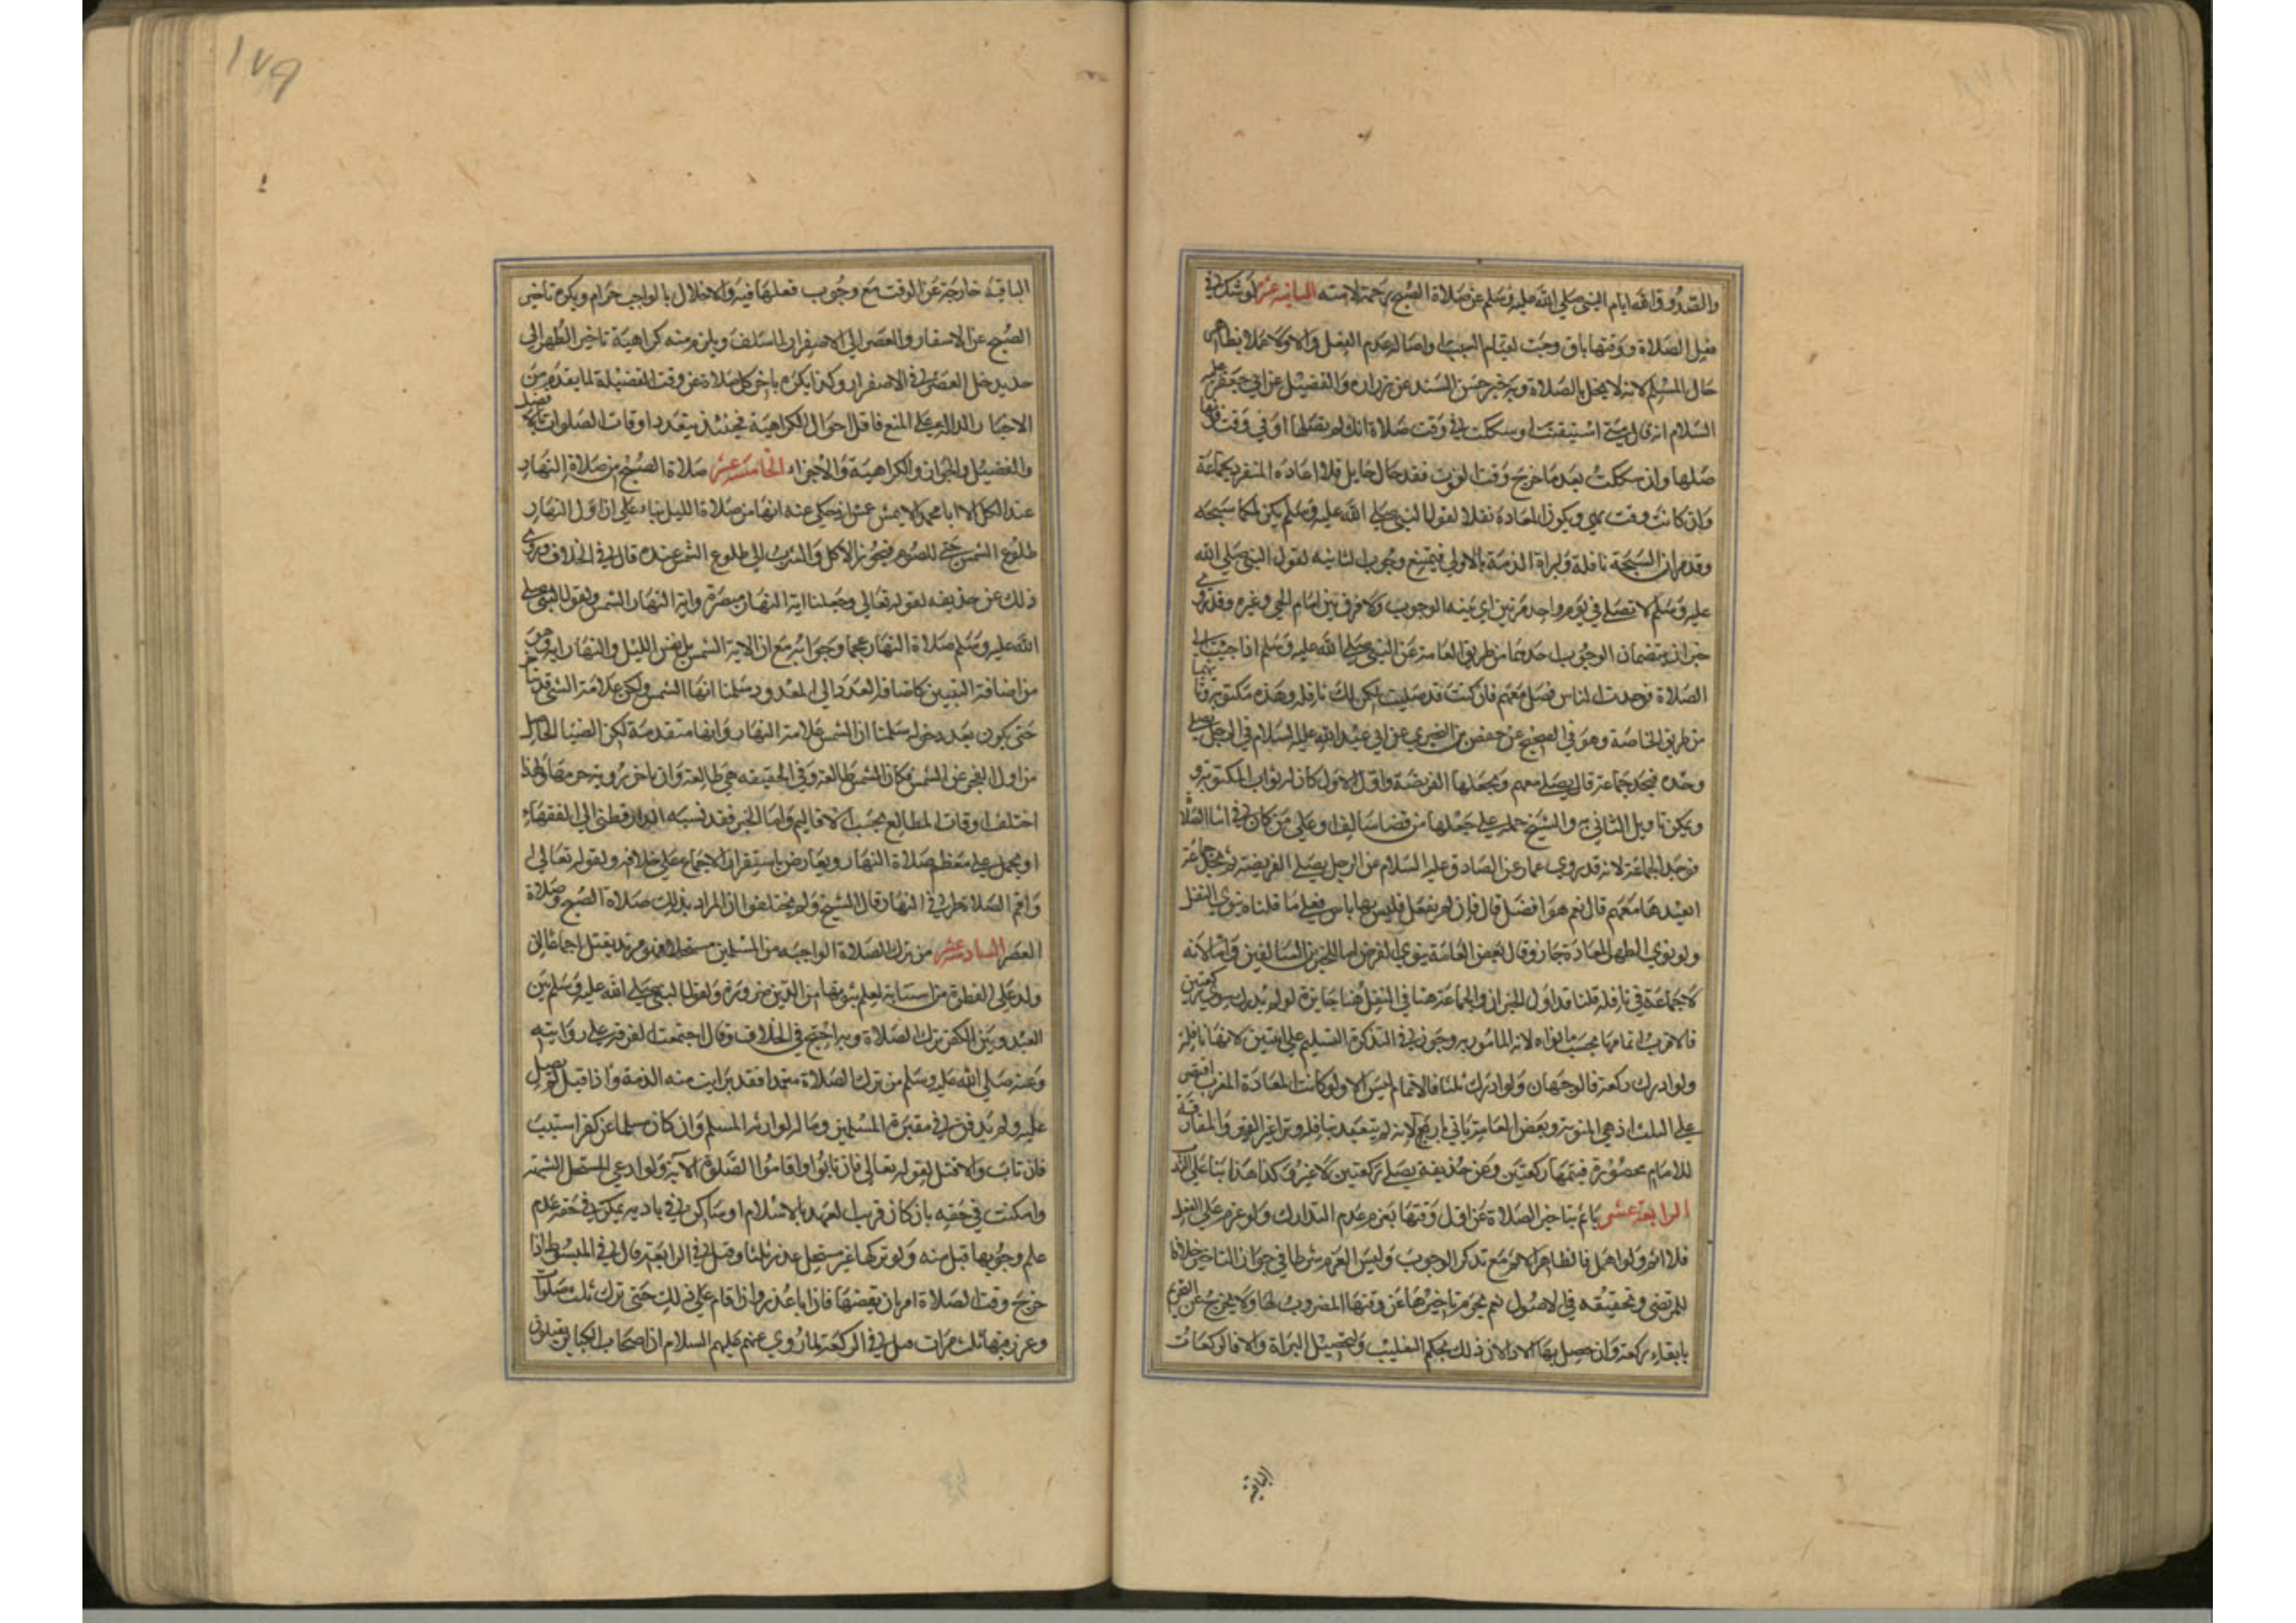 والصدوق اقصا بام النبي صلى الله عليه وسلم عن صلاة الصبح رحمة لامته الثانية عشر لو شك في
فعل الصلاة ووقتها باق وجبت لقيام السبب واصالة عدم الفعل والا فلا عملا بظاهر
حال المسلم لانه لا يخل بالصلاة وبه خبر حسن السند عن زرارة والفضيل عن ابي جعفر عليه
السلام انه قال متى استيقنت او شككت في وقت صلاة انك لم تصلها او في وقت فوتها
صلها وان شككت بعد ما خرج وقت الفوت فقد حال حايل فلا اعادة المنفرد بجماعة
وان كانت وقت نهي ويكون المعادة نفلا لقول النبي صلى الله عليه وسلم يكن لكما سبحة
وقد مر ان السبحة نافلة ولبراة الذمة بالاولى فيمتنع وجوب الثانية لقول النبي صلى الله
عليه وسلم لا تصلى في يوم واحد مرتين اي بنية الوجوب ولا فرق بين امام الحي وغيره وقد روي
خبران يتضمان الوجوب احدهما من طريق العامة عن النبي صلى الله عليه وسلم اذا جيت الى
الصلاة فوجدت الناس فصل معهم فان كنت قد صليت تكن لك نافلة وهذه مكتوبة وثانيهما
من طريق الخاصة وهو في الصحيح عن حفص بن البختري عن ابي عبد الله عليه السلام في الرجل يصلي
وحده فيجد جماعة قال يصلي معهم ويجعلها الفريضة واول الاول كان له ثواب المكتوبة و
ويمكن تاويل الثاني به والشيخ حمله على جعلها من قضا سالف او على من كان في اثنا الصلاة
فوجد الجماعة لانه قد روى عمار عن الصادق عليه السلام عن الرجل يصلي الفريضة ثم يجد جماعة
ايعيدها معهم قال نعم هو افضل قال فان لم يفعل فليس بها باس فعلى ما قلناه ينوي النفل
ولو نوى الظهر المعادة جاز وقال بعض العامة ينوي الفرض اما للخبرين السالفين واما لانه
لا جماعة في نافلة قلنا قد اول الخبران والجماعة هنا في النفل هنا جايزة لو لم يدرك سوى ركعتين
فالاقرب اتمامها بحسب ما نواه لانه المامور به وجوز في التذكرة التسليم على اثنتين لانها نافلة
ولو ادرك ركعة فالوجهان ولو ادرك ثلثا فالاتمام ليس الا ولو كانت المعادة المغرب اقتصر
على الثلث اذ هي المنوية وبعض العامة ياتي باربع لانه لم يتعبد بنافلة وتر اغير الوتر والمفارقة
للامام محصورة فيتمها ركعتين وعن حذيفة يصلي ركعتين لا غير وكذا هذا بنا على الندب
الرابعة عشر ياثم بتاخير الصلاة عن اول وقتها بعزم عدم التدارك ولو عزم على الفعل
فلا اثم ولو اهمل فالظاهر الاثم مع تذكر الوجوب وليس العزم شرطا في جواز التاخير خلافا
للمرتضى وتحقيقه في الاصول نعم يحرم تاخيرها عن وقتها المضروب لها ولا يخرج عن التحريم
بابقاء ركعة وان حصل بها الادا لان ذلك بحكم التغليب ولتحصيل البراة والا فالركعات
الباقية
١٧٩
الباقية خارجة عن الوقت مع وجوب فعلها فيه والاخلال بالواجب حرام ويكره تاخير
الصبح عن الاسفار والعصر الى الاصفرار لما سلف ويلزم منه كراهية تاخير الظهر الى
حد يدخل العصر في الاصفرار وكذا يكره تاخر كل صلاة عن وقت الفضيلة لما تقدم من
الاخبار الدالة على المنع فاقل احوال الكراهية فحينئذ يتعدد اوقات الصلوات
والفضيل والجواز والكراهية والاجزاء الخامسة عشر صلاة الصبح من صلاة النهار
عند الكل الا ابا محمد الاعمش عش اذ حكي عنه انها من صلاة الليل بناء على ان اول النهار
طلوع الشمس حتى للصوم فيجوز الاكل والشرب الى طلوع الشمس عنده قال في الخلاف وروي
ذلك عن حذيفة لقوله تعالى وجعلنا اية النهار مبصرة واية النهار الشمس ولقول النبي صلى
الله عليه وسلم صلاة النهار عجما وجوابه منع ان الاية الشمس بل نفس الليل والنهار ايتان وهو
من اضافة التبيين كاضافة العدد الى المعدود سلمنا انها الشمس ولكن علامة الشي قد تتاخر
حتى يكون بعد دخوله سلمنا ان الشمس علامة النهار وانها متقدمة لكن الضيا الحاصل
من اول الفجر عن الشمس فكان الشمس طالعة وفي الحقيقة هي طالعة وان تاخر رؤية جرمها ولهذا
اختلف اوقات المطالع بحسب الاقاليم واما الخبر فقد نسبه الدارقطني الى الفقهاء
او يحمل على معظم صلاة النهار ويعارض باستقرار الاجماع على خلافه ولقوله تعالى ا
واقم الصلاة طرفي النهار قال الشيخ ولم يختلفوا ان المراد بذلك صلاة الصبح وصلاة
العصر السادسة عشر من ترك الصلاة الواجبة من المسلمين مستحلا فهو مرتد يقتل اجماعا ان
ولد على الفطرة من استتابة لعلم ثبوتها من الدين ضرورة ولقول النبي صلى الله عليه وسلم بين
العبد وبين الكفر ترك الصلاة وبه احتج في الخلاف وقال اجتمعت الفرقة على روايته
وعنه صلى الله عليه وسلم من ترك الصلاة متعمدا فقد برايت منه الذمة واذا قتل لم يصل
عليه ولم يدفن في مقبرة المسلمين وماله لوارثه المسلم وان كان مسلما عن كفر استتيب
فان تاب والا قتل لقوله تعالى فان تابوا واقاموا الصلوة الاية ولو ادعى المستحل الشبهة
وامكنت في حقه بان كان قريب العهد بالاسلام او ساكن في بادية يمكن في حقه عدم
علم وجوبها قبل منه ولو تركها غير مستحل عذر ثلثا وقتل في الرابعة قال في المبسوط اذا
خرج وقت الصلاة امر بان يقضيها فان ابا عذر وان اقام على ذلك حتى ترك ثلث صلوات
وعزر فيها ثلث مرات قتل في الركعة لما روي عنهم عليهم السلام ان اصحاب الكباير يقتلون